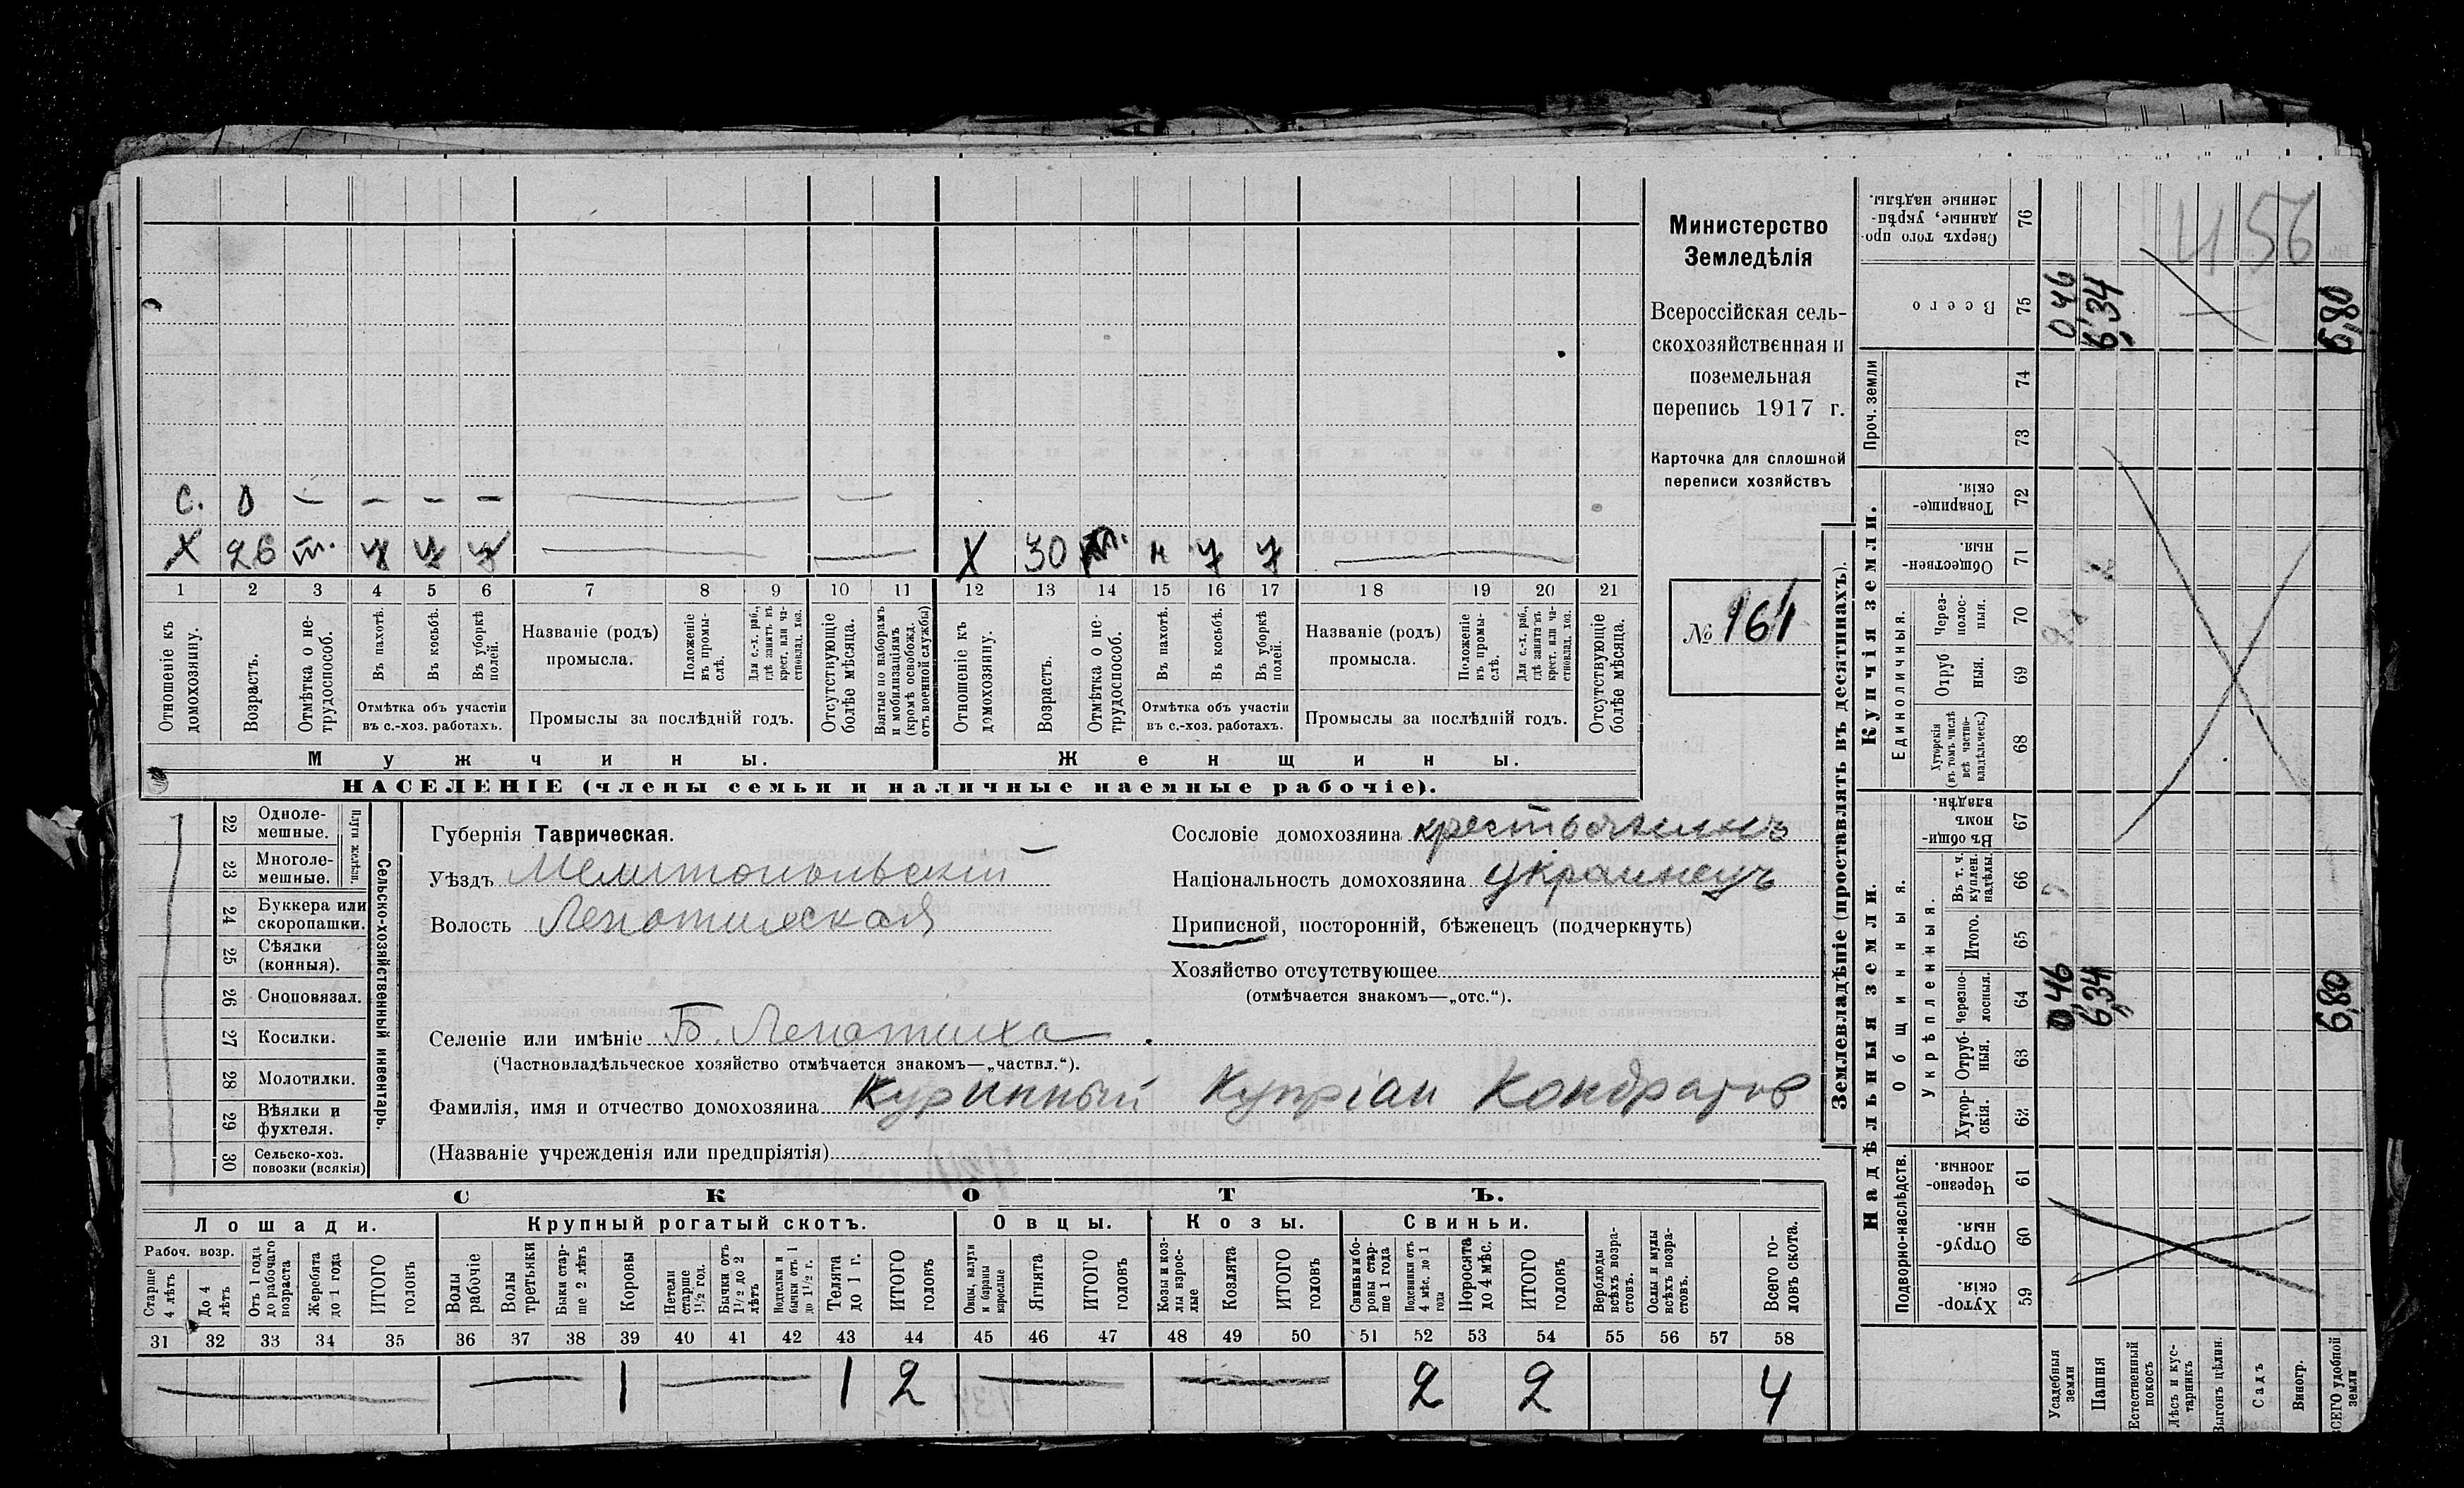 С. 0 — — — — — —
Х 26 т. у у у — — Х 30 т. н у у —
1 2 3 4 5 6 7 8 9 10 11 12 13 14 15 16 17 18 19 20 21
Отношеніе къ домохозяину.
Возрастъ.
Отмѣтка о нетрудоспособ.
Въ пахотѣ.
Въ косьбѣ.
Въ уборкѣ полей.
Отмѣтка объ участіи
въ с.-хоз. работахъ.
Названіе (родъ)
промысла.
Положеніе въ промыслѣ.
Для с.-х. раб., гдѣ занятъ въ крест. или частновлад. хоз.
Промыслы за послѣдній годъ.
Отсутствующіе болѣе мѣсяца.
Взятые по наборамъ и мобилизаціямъ (кромѣ освобожд. отъ военной службы)
Отношеніе къ домохозяину.
Возрастъ.
Отмѣтка о нетрудоспособ.
Въ пахотѣ.
Въ косьбѣ.
Въ уборкѣ полей.
Отмѣтка объ участіи
въ с.-хоз. работахъ.
Названіе (родъ)
промысла.
Положеніе въ промыслѣ.
Для с.-х. раб., гдѣ занята въ крест. или частновлад. хоз.
Промыслы за послѣдній годъ.
Отсутствующіе болѣе мѣсяца.
Мужчины. Женщины.
НАСЕЛЕНІЕ (члены семьи и наличные наемные рабочіе).
Министерство
Земледѣлія
Всероссійская сель-
скохозяйственная и
поземельная
перепись 1917 г.
Карточка для сплошной
переписи хозяйствъ
№ 161
22 Однолемешные.
23 Многолемешные.
Плуги желѣзн.
24 Буккера или скоропашки.
25 Сѣялки (конныя).
26 Сноповязал.
27 Косилки.
28 Молотилки.
29 Вѣялки и фухтеля.
30 Сельско-хоз. повозки (всякія)
Сельско-хозяйственный инвентарь.
Губернія Таврическая.
Уѣздъ Мелитопольскій
Волость Лепатихская
Сословіе домохозяина крестьянинъ
Національность домохозяина украинецъ
Приписной, посторонній, бѣженецъ (подчеркнуть)
Хозяйство отсутствующее
(отмѣчается знакомъ—„отс.“).
Селеніе или имѣніе Б. Лепатиха
(Частновладѣльческое хозяйство отмѣчается знакомъ—„частвл.“).
Фамилія, имя и отчество домохозяина Куринный Купріан Кондратов
(Названіе учрежденія или предпріятія)
СКОТЪ.
Лошади. Крупный рогатый скотъ. Овцы. Козы. Свиньи.
Рабоч. возр.
Старше 4 лѣтъ
До 4 лѣтъ
Отъ 1 года до рабочаго возраста
Жеребята до 1 года
ИТОГО головъ
Волы рабочіе
Волы третьяки
Быки старше 2 лѣтъ
Коровы
Нетели старше 1½ год.
Бычки отъ 1½ до 2 лѣтъ
Подтелки и бычки отъ 1 до 1½ г.
Телята до 1 г.
ИТОГО головъ
Овцы, валухи и бараны взрослые
Ягнята
ИТОГО головъ
Козы и козлы взрослые
Козлята
ИТОГО головъ
Свиньи и боровы старше 1 года
Подсвинки отъ 4 мѣс. до 1 года
Поросята до 4 мѣс.
ИТОГО головъ
Верблюды всѣхъ возрастовъ.
Ослы и мулы всѣхъ возрастовъ.
Всего головъ скота.
31 32 33 34 35 36 37 38 39 40 41 42 43 44 45 46 47 48 49 50 51 52 53 54 55 56 57 58
— — 1 — 1 2 — — 2 2 4
Землевладѣніе (проставлять въ десятинахъ).
456
76 Сверхъ того проданные, укрѣпленные надѣлы.
75 Всего 0 46 6,34 6,80
Проч. земли
74
73
Купчія земли.
72 Товарищескія.
71 Общественныя.
Единоличныя.
70 Черезполосныя.
69 Отрубныя.
68 Хуторскія (въ томъ числѣ всѣ частновладѣльческ.)
Надѣльныя земли.
Общинныя.
67 Въ общинномъ владѣн.
Укрѣпленныя.
66 Въ т. ч. куплен. надѣлы.
65 Итого.
64 Черезполосныя. 0 46 6,34 6,80
63 Отрубныя.
62 Хуторскія.
Подворно-наслѣдств.
61 Черезполосныя.
60 Отрубныя.
59 Хуторскія.
Усадебныя земли
Пашня
Естественный покосъ
Лѣсъ и кустарникъ
Выгонъ цѣлин.
Садъ
Виногр.
ВСЕГО удобной земли